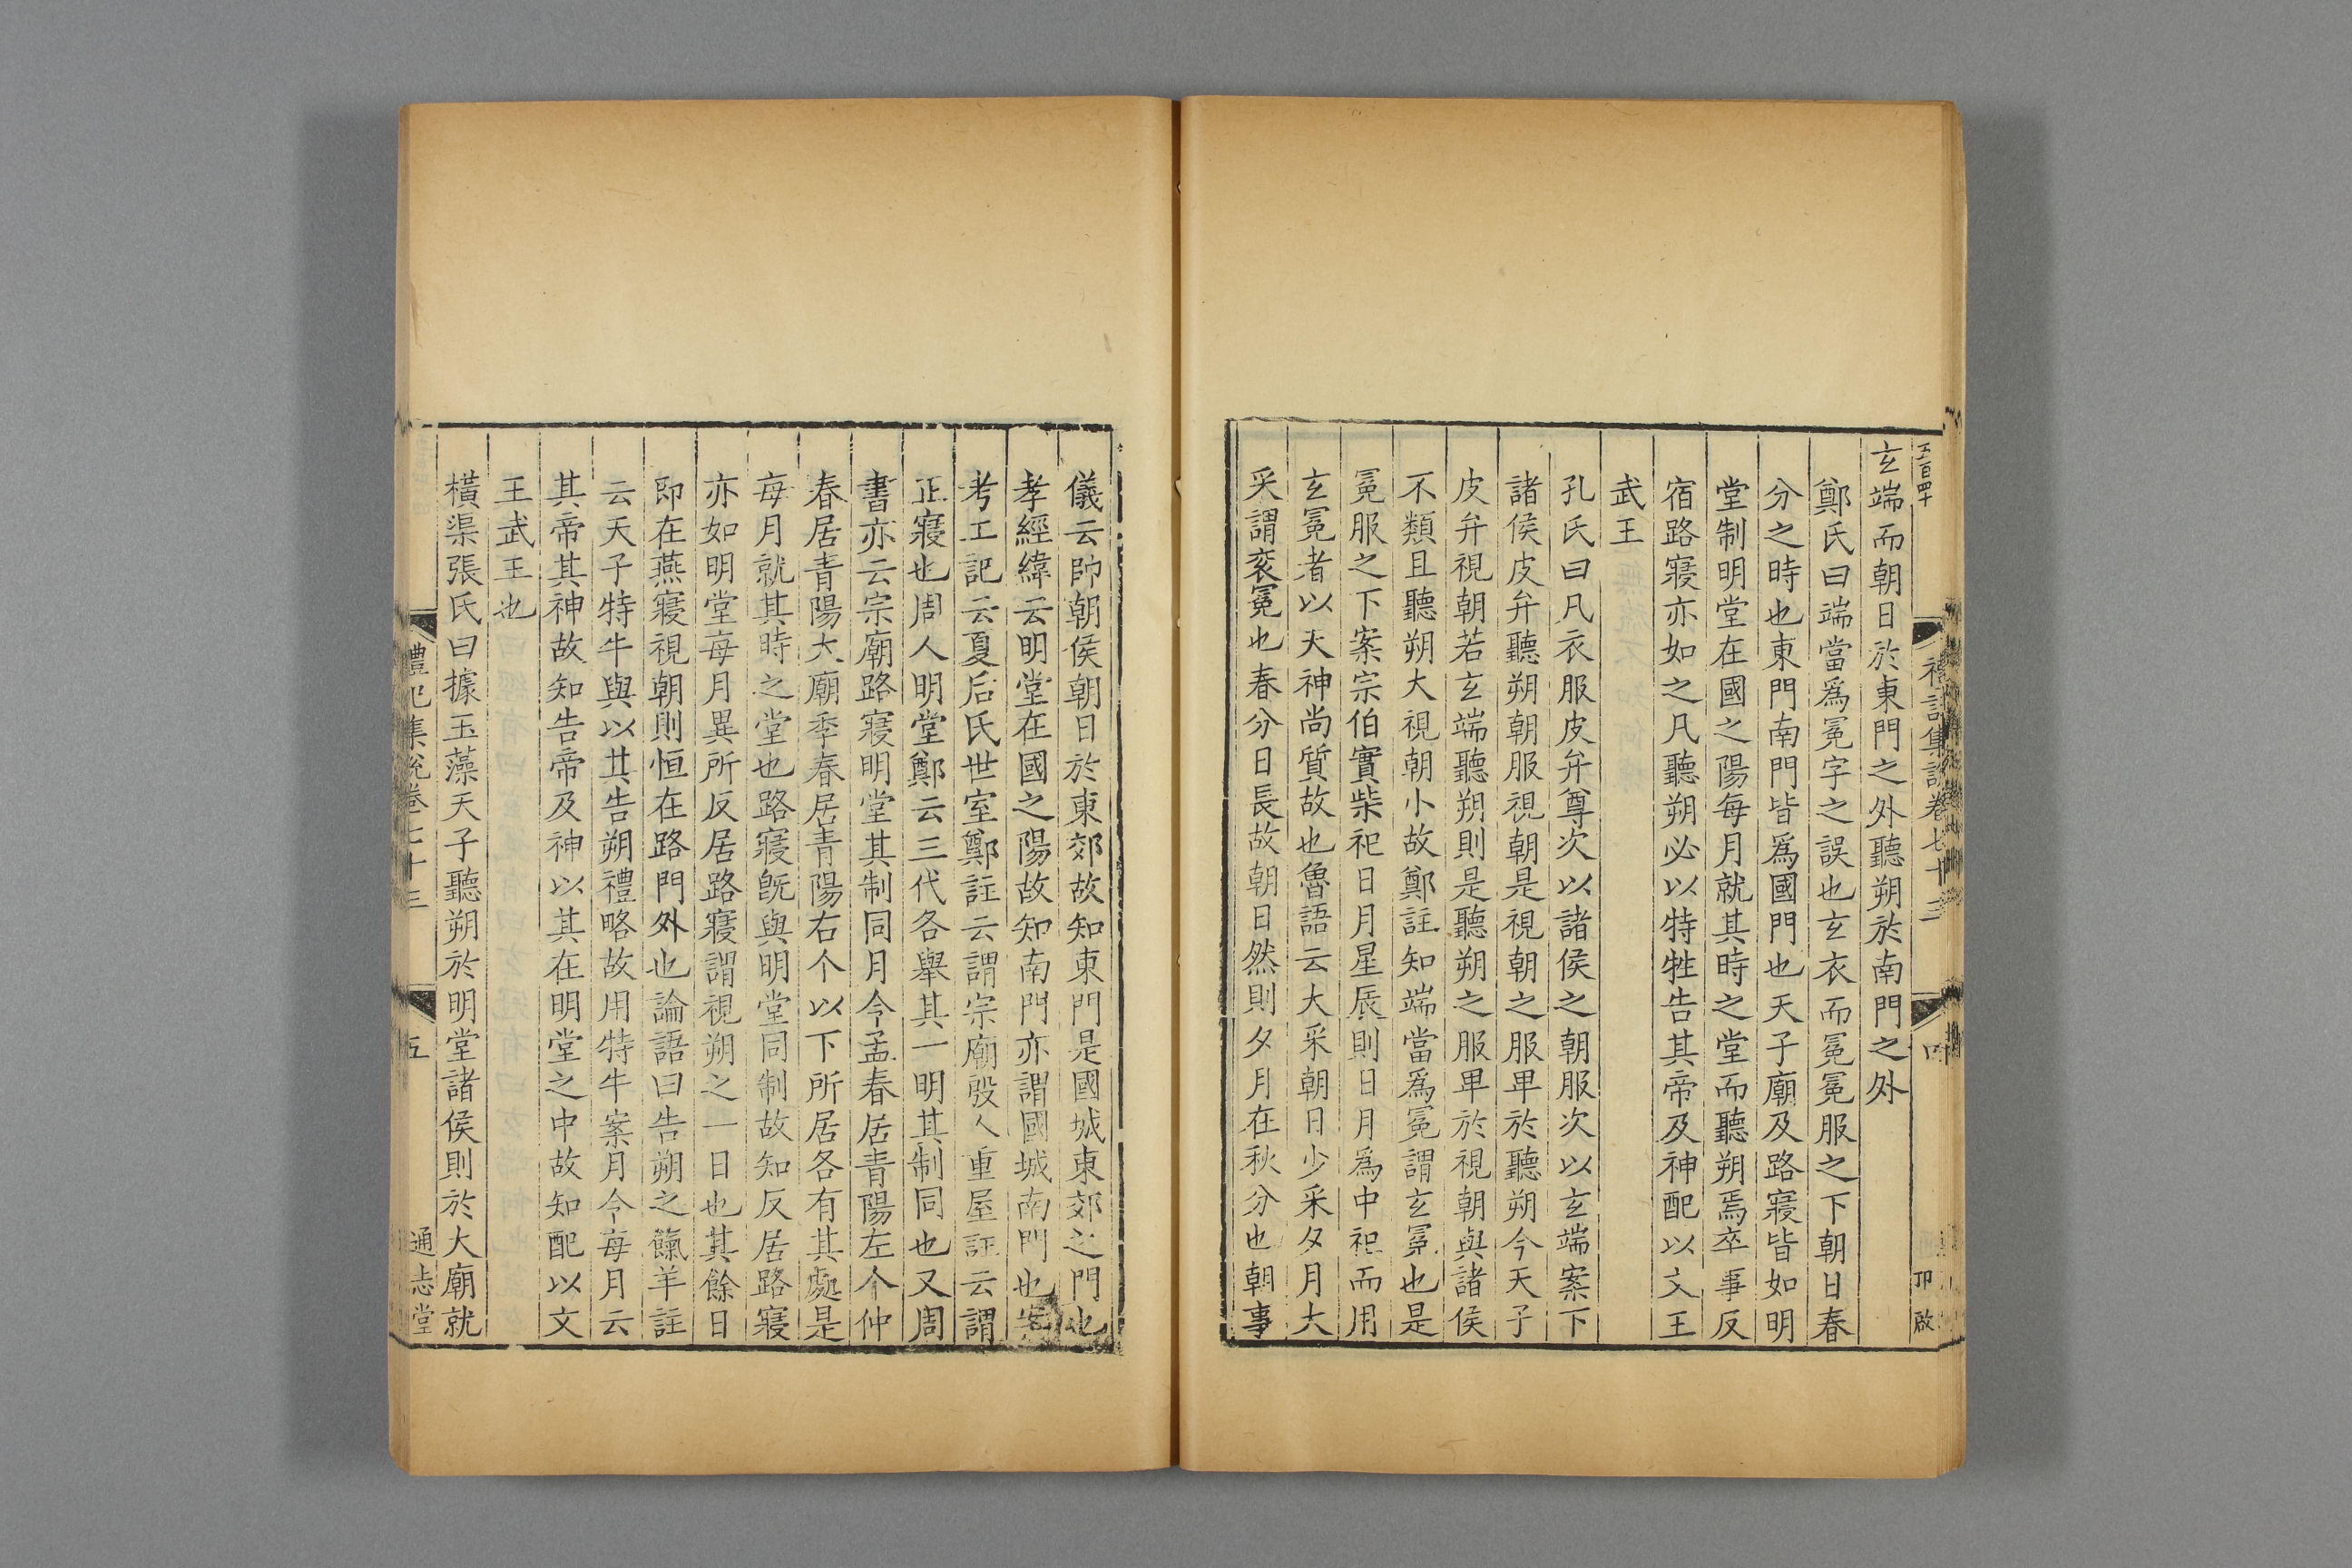 五百四十
禮記集說卷七十三
四
卭啟
玄端而朝日於東門之外聽朔於南門之外
鄭氏曰端當爲冕字之誤也玄衣而冕冕服之下朝日春
分之時也東門南門皆爲國門也天子廟及路寢皆如明
堂制明堂在國之陽每月就其時之堂而聽朔焉卒事反
宿路寢亦如之凡聽朔必以特牲告其帝及神配以文王
武王
孔氏曰凡衣服皮弁尊次以諸侯之朝服次以玄端案下
諸侯皮弁聽朔朝服視朝是視朝之服卑於聽朔今天子
皮弁視朝若玄端聽朔則是聽朔之服卑於視朝與諸侯
不類且聽朔大視朝小故鄭註知端當爲冕謂玄冕也是
冕服之下案宗伯實柴祀日月星辰則日月爲中祀而用
玄冕者以天神尚質故也魯語云大采朝日少采夕月大
采謂衮冕也春分日長故朝日然則夕月在秋分也朝事
儀云帥朝侯朝日於東郊故知東門是國城東郊之門也
孝經緯云明堂在國之陽故知南門亦謂國城南門也案
考工記云夏后氏世室鄭註云謂宗廟殷人重屋註云謂
正寢也周人明堂鄭云三代各舉其一明其制同也又周
書亦云宗廟路寢明堂其制同月令孟春居青陽左个仲
春居青陽大廟季春居青陽右个以下所居各有其處是
每月就其時之堂也路寢旣與明堂同制故知反居路寢
亦如明堂每月異所反居路寢謂視朔之一日也其餘日
即在燕寢視朝則恒在路門外也論語曰告朔之餼羊註
云天子特牛與以其告朔禮略故用特牛案月令每月云
其帝其神故知告帝及神以其在明堂之中故知配以文
王武王也
橫渠張氏曰據玉藻天子聽朔於明堂諸侯則於大廟就
禮記集說卷七十三
五
通志堂